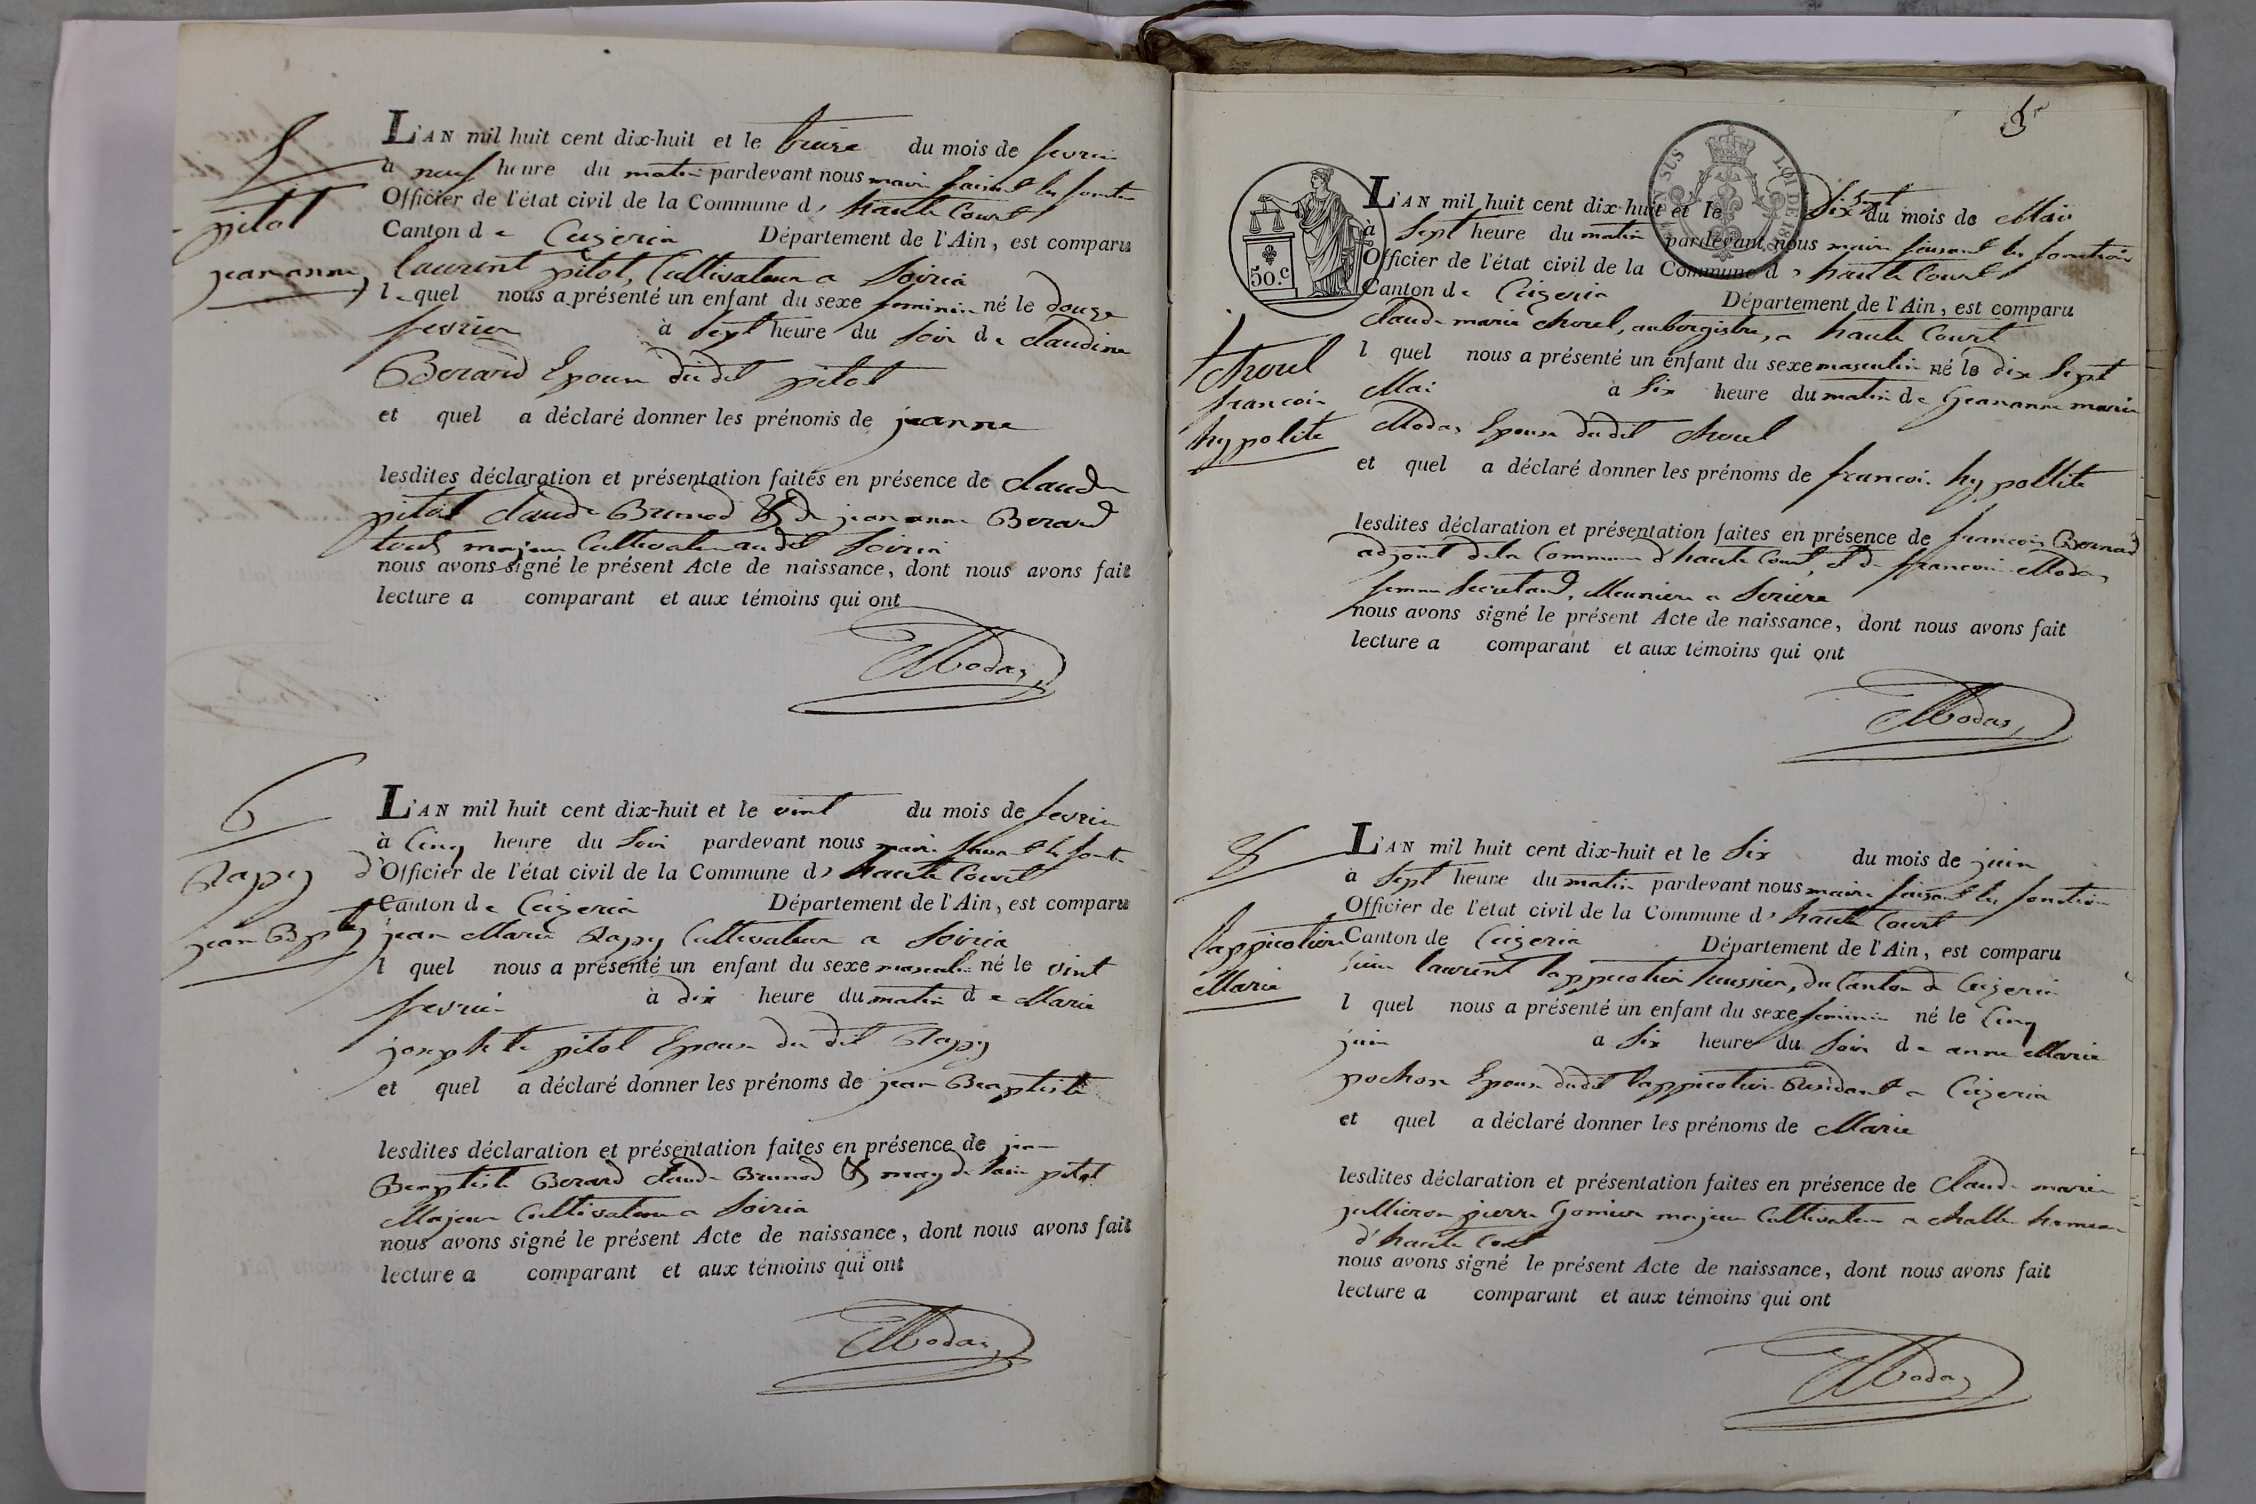 5
pitot
jeananne
L'AN mil huit cent dix-huit et le treize du mois de fevrier
à neuf heure du matin pardevant nous maire faisant les fonction
Officier de l'état civil de la Commune d, haute Court
Canton de Ceizeria Département de l'Ain, est comparu
laurent pitot, Cultivateur a Soiria
lequel nous a présenté un enfant du sexe feminin né le douze
fevrier à sept heure du soir de claudine
Berard Epouse dudit pitot
et quel a déclaré donner les prénoms de jeanne
lesdites déclaration et présentation faites en présence de claude
pitot claude Brunod & de jeananne Berard
tous majeur Cultivateur audit Soiria
nous avons signé le présent Acte de naissance, dont nous avons fait
lecture a comparant et aux témoins qui ont
Modas
6
Rapy
jean Bpte
L'AN mil huit cent dix-huit et le vint du mois de fevrier
à Cinq heure du Soir pardevant nous maire
d'Officier de l'état civil de la Commune d, haute Court
Canton de Ceizeria Département de l'Ain, est comparu
jean Marie Rapy Cultivateur a Soiria
l quel nous a présenté un enfant du sexe masculin né le vint
fevrier à dix heure du matin de Marie
josephte pitot Epouse du dit Rapy
et quel a déclaré donner les prénoms de jean Beaptiste
lesdites déclaration et présentation faites en présence de jean
Beaptiste Berard claude Brunod & magdelaine pitot
Majeur Cultivateur a Soiria
nous avons signé le présent Acte de naissance, dont nous avons fait
lecture a comparant et aux témoins qui ont
Modas
50.c
EN SUS LOI DE 18
7
chorel
francois
hypolite
L'AN mil huit cent dix-huit et le Dix sept du mois de Mai
à Sept heure du matin pardevant nous maire faisant les fonction
Officier de l'état civil de la Commune d, haute Court
Canton de Ceizeria Département de l'Ain, est comparu
claude marie chorel, aubergistre, a haute Court
l quel nous a présenté un enfant du sexe masculin né le dix sept
Mai à Six heure du matin de Jeananne marie
Modas Epouse dudit chorel
et quel a déclaré donner les prénoms de francoi hypollite
lesdites déclaration et présentation faites en présence de francois Bernard
adjoint de la Commune d'haute Court, et de francoise Modas
femme Secretand, Meuniere a Soriere
nous avons signé le présent Acte de naissance, dont nous avons fait
lecture a comparant et aux témoins qui ont
Modas
8
lappicotiere
Marie
L'AN mil huit cent dix-huit et le Six du mois de juin
à Sept heure du matin pardevant nous maire faisant les fonction
Officier de l'état civil de la Commune d, haute Court
Canton de Ceizeria Département de l'Ain, est comparu
laurent lappicotier huissier, du Canton de Ceizeria
l quel nous a présenté un enfant du sexe feminin né le Cinq
juin a Six heure du Soir de anne Marie
pochon Epouse dudit lappicotier Residant a Ceizeria
et quel a déclaré donner les prénoms de Marie
lesdites déclaration et présentation faites en présence de claude marie
jullieron pierre Gomier majeur Cultivateur a challe hameau
d'haute Court
nous avons signé le présent Acte de naissance, dont nous avons fait
lecture a comparant et aux témoins qui ont
Modas